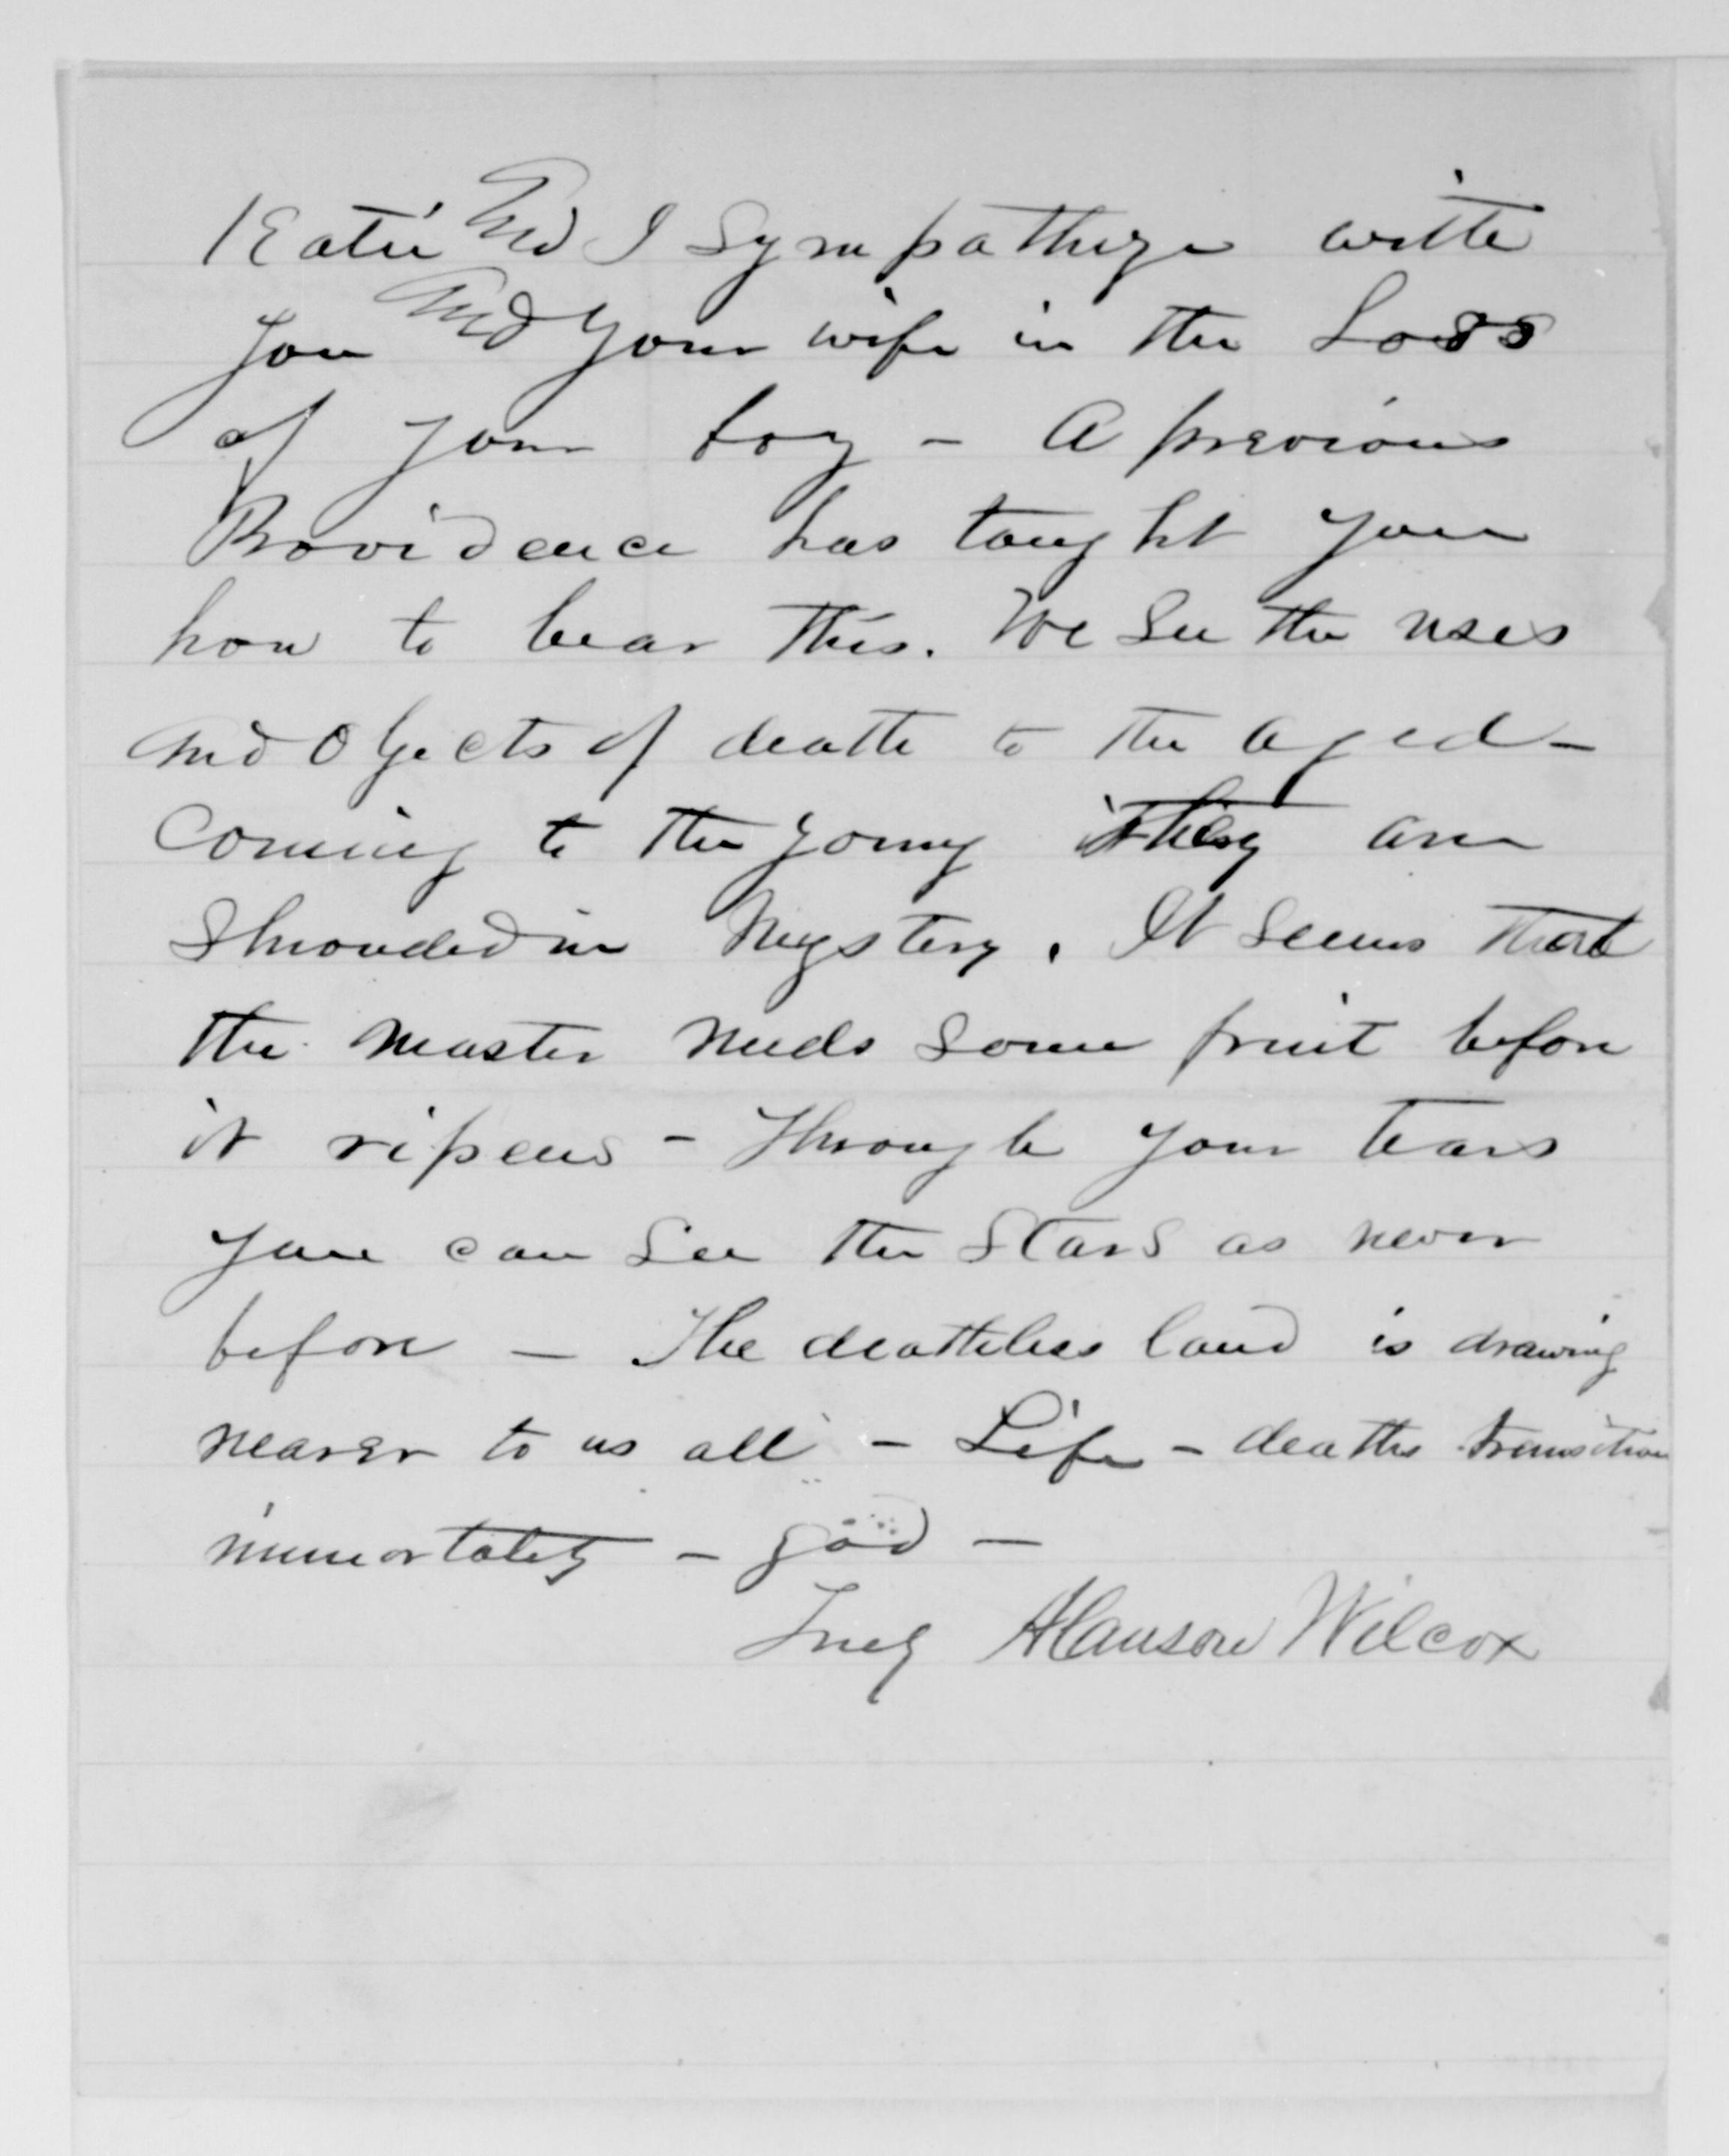 Katie and I sympathize with
you and your wife in the Loss
of your boy - A previous
Providence has taught you
how to bear this. We see the uses
and objects of death to the aged -
Coming to the young they are
Shrouded in Mystery. It seems that
the master needs some fruit before
it ripens - Through your tears
you can see the stars as never
before - The deathless land is drawing
nearer to us all - Life - deaths transition
immortality - god -
Truly Alanson Wilcox